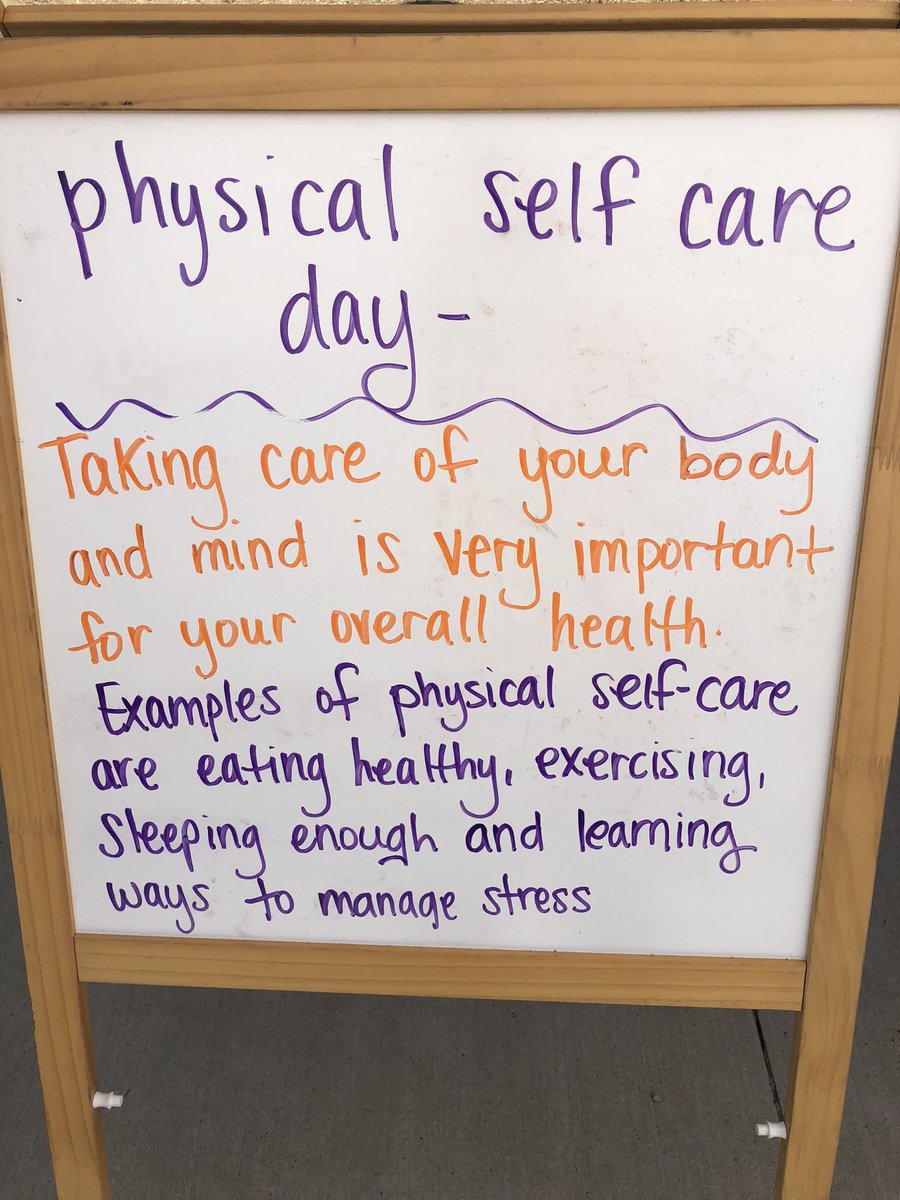 physical self care
day-
Taking care of your body
and mind is very important
for your overall health.
Examples of physical self-care
are eating healthy, exercising,
Sleeping enough and learning
ways to manage stress